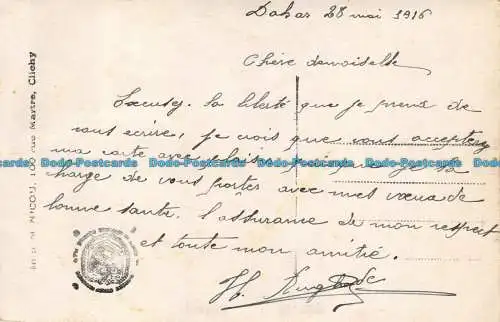 Dakar 28 mai 1916
Chère demoiselle
Excusez la liberté que je prend de
vous écrire, je crois que vous accepterez
ma carte avec plaisir je la
charge de vous porter avec mes voeux de
bonne santé. l'assurance de mon respect
et toute mon amitié.
H.
100 rue Martre, Clichy
Dodo-Postcards Dodo-Postcards Dodo-Postcards Dodo-Postcards